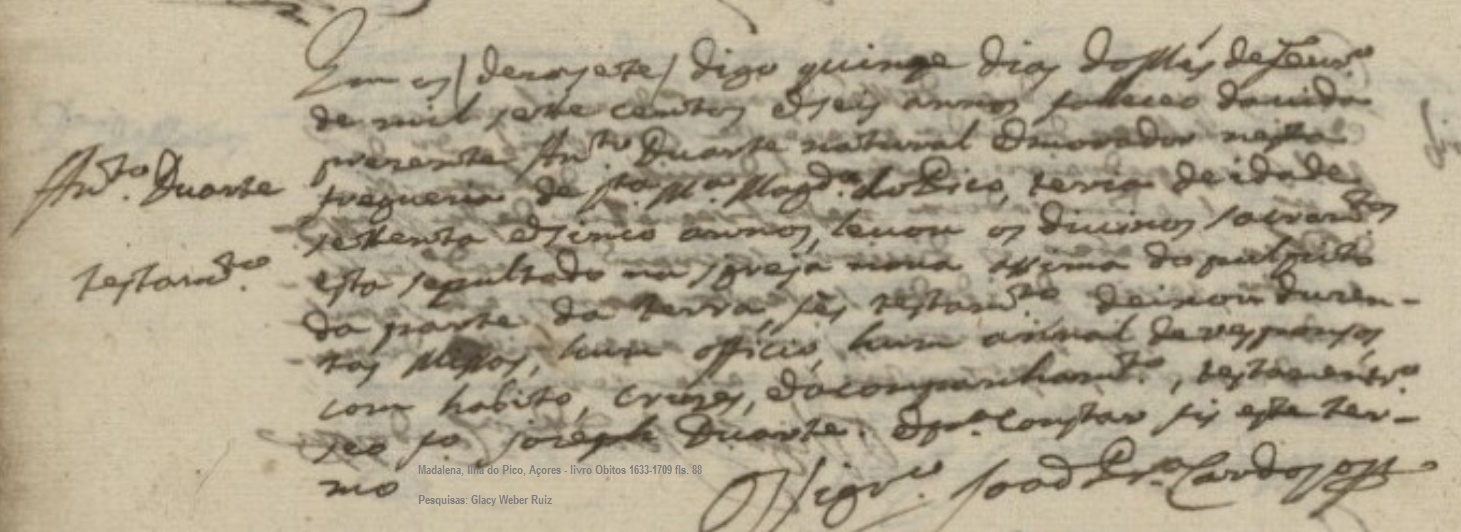 Em os (desasete) digo quinze dias do Mes de Feur.º
de mil sette centos e seis annos faleceo da uida
prezente An.to Duarte natural e morador nesta
freguezia de S.ta M.a Magd.a do Pico, teria de idade
An.to Duarte
settenta e sinco annos, leuou os diuinos sacram.tos
testam.to
esta sepultado na Igreja noua assima do pulpito
da parte da terra, fes testam.to deixou duzen-
tas Missas, hum officio, hum annal de responsos
com habito, cruzes, e acompanham.to, testamentr.º
seo f.º Joseph Duarte. E p.a constar fis este ter-
mo
O Vigr.º João Pr.ª Cardoso
Madalena, Ilha do Pico, Açores - livro Obitos 1633-1709 fls. 88
Pesquisas: Glacy Weber Ruiz